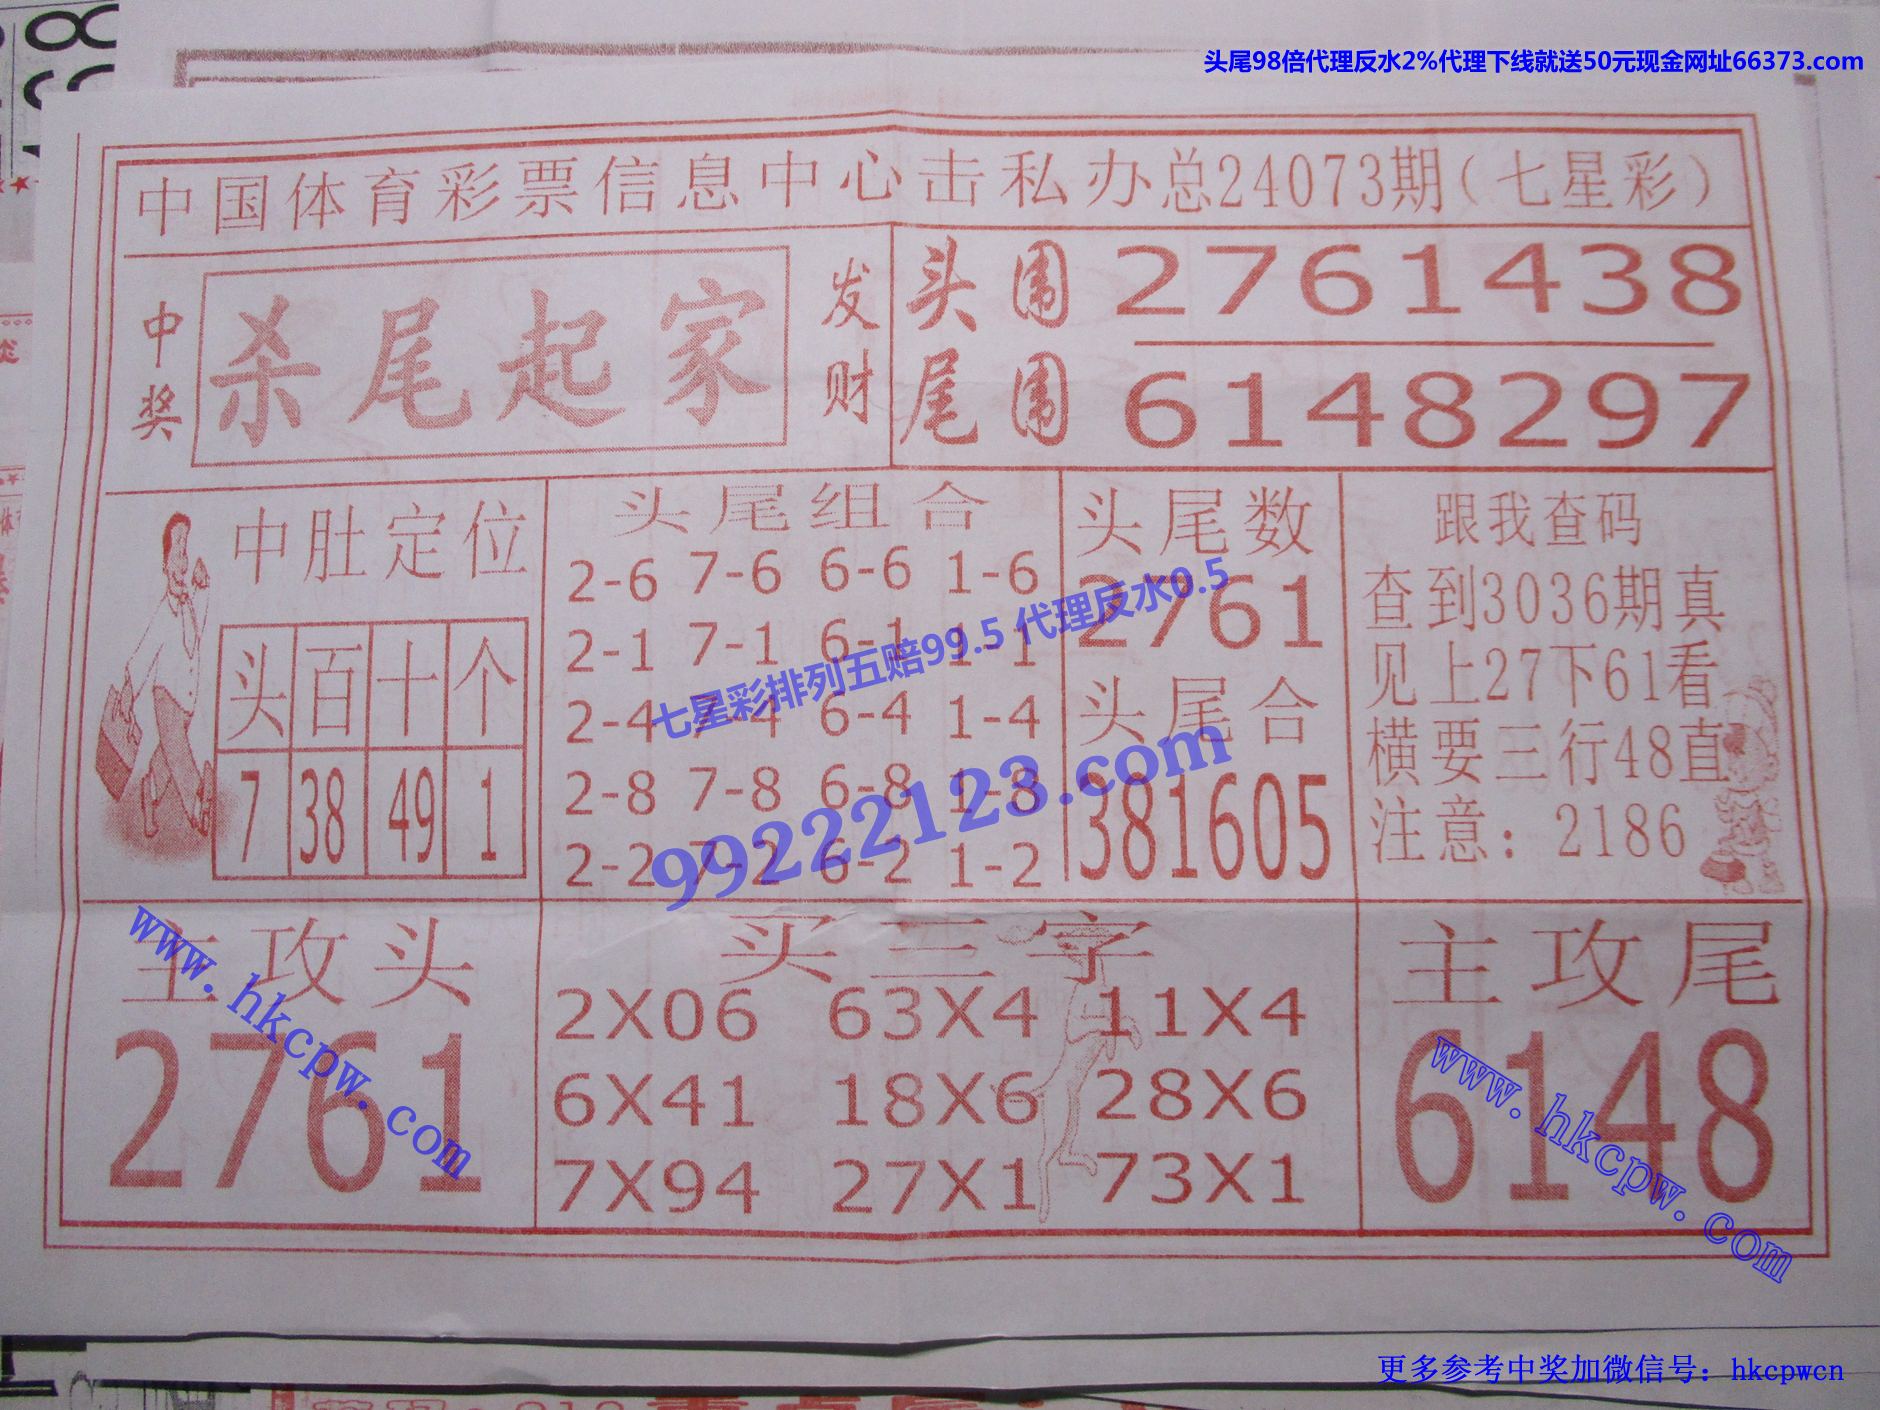 头尾98倍代理反水2%代理下线就送50元现金网址66373.com
中国体育彩票信息中心击私办总24073期(七星彩)
中奖
杀尾起家
发财
头围 2761438
尾围 6148297
中肚定位
头 百 十 个
7 38 49 1
头尾组合
2-6 7-6 6-6 1-6
2-1 7-1 6-1 1-1
2-4 7-4 6-4 1-4
2-8 7-8 6-8 1-8
2-2 7-2 6-2 1-2
头尾数
2761
头尾合
381605
跟我查码
查到3036期真
见上27下61看
横要三行48直
注意:2186
七星彩排列五赔99.5 代理反水0.5
99222123.com
主攻头
2761
www.hkcpw.com
买三字
2X06 63X4 11X4
6X41 18X6 28X6
7X94 27X1 73X1
主攻尾
6148
www.hkcpw.com
更多参考中奖加微信号：hkcpwcn